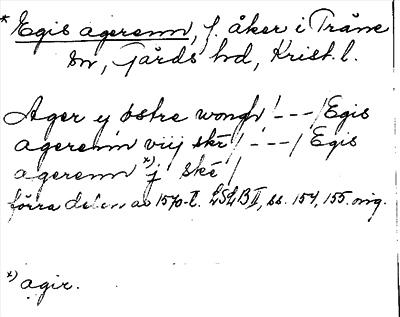 * Egis agerenn, f. åker i Träne
sn, Gärds hd, Krist. l.
Ager y østre wongh! ---/ Egis
agerenn viij skr / ---/ Egis
agerenn x) j ské /
förra delen av 1570-t. LSLB II, ss. 154, 155. orig.
x) agir.